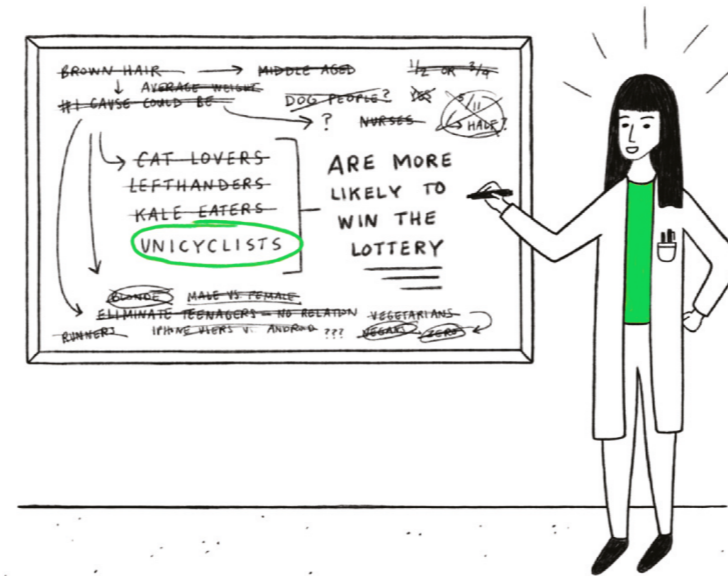 BROWN HAIR → MIDDLE AGED 1/2 OR 3/4
AVERAGE WEIGHT
#1 CAUSE COULD BE DOG PEOPLE?
? NURSES HALF?
CAT LOVERS
LEFTHANDERS
KALE EATERS
UNICYCLISTS
ARE MORE
LIKELY TO
WIN THE
LOTTERY
BLONDE MALE VS. FEMALE
ELIMINATE TEENAGERS = NO RELATION VEGETARIANS
RUNNERS IPHONE USERS V. ANDROID ??? VEGANS ZERO